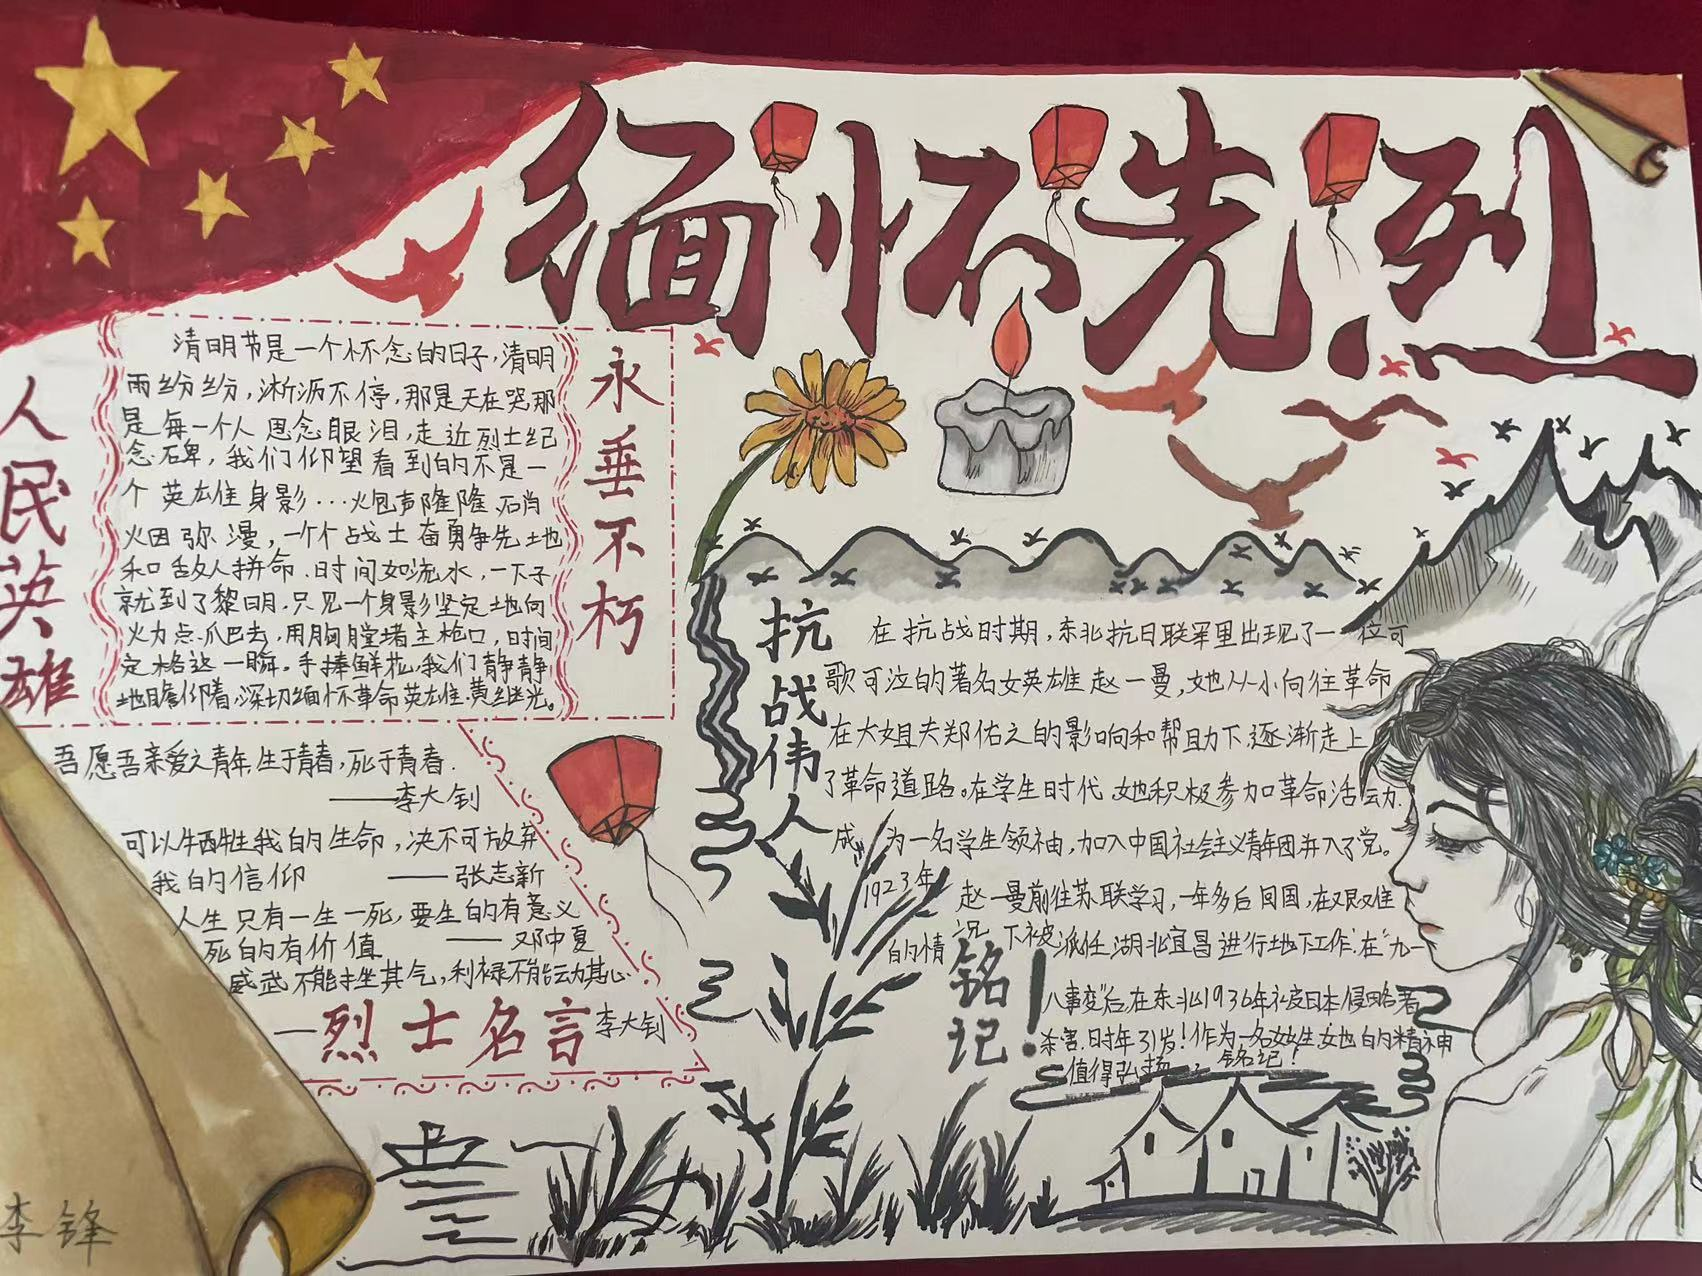 缅怀先烈
人民英雄
清明节是一个怀念的日子,清明
雨纷纷,淅沥不停,那是天在哭,那
是每一个人思念眼泪,走近烈士纪
念碑,我们仰望看到的不是一
个英雄身影…火炮声隆隆,硝
烟弥漫,一个个战士奋勇争先地
和敌人拼命.时间如流水,一下子
就到了黎明.只见一个身影坚定地向
火力点爬去,用胸膛堵住枪口,时间
定格这一瞬。手捧鲜花,我们静静
地瞻仰着,深切缅怀革命英雄:黄继光。
永垂不朽
吾愿吾亲爱之青年,生于青春,死于青春.
——李大钊
可以牺牲我的生命,决不可放弃
我的信仰 ——张志新
人生只有一生一死,要生的有意义
死的有价值 ——邓中夏
威武不能挫其气,利禄不能动其心
—李大钊
烈士名言
抗战伟人
在抗战时期,东北抗日联军里出现了一位可
歌可泣的著名女英雄赵一曼,她从小向往革命
在大姐夫郑佑之的影响和帮助下,逐渐走上
了革命道路。在学生时代她积极参加革命活动.
成为一名学生领袖,加入中国社会主义青年团并入了党。
1923年赵一曼前往苏联学习,一年多后回国,在艰难
的情况下被派任湖北宜昌进行地下工作.在"九一
八事变"后,在东北1936年被日本侵略者
杀害.时年31岁!作为一名女生,她的精神
值得弘扬 铭记!
铭记!
李锋